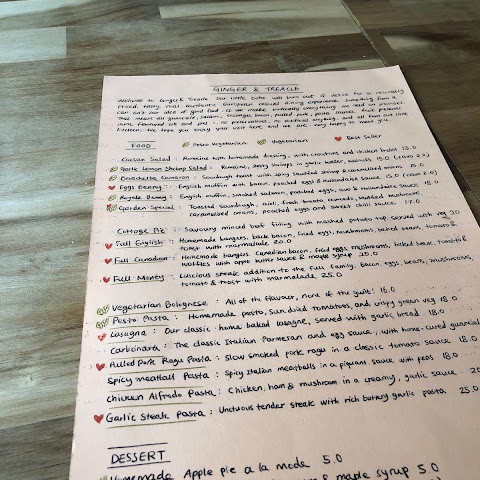 GINGER & TREACLE
Welcome to Ginger & Treacle. Our little cafe was born out of desire for a reasonably
priced, tasty, real, authentic European casual dining experience. Something from a
can isn't our idea of good food so we make virtually everything we need in house.
That means all bacon, sausages, pulled pork, pasta sauces, fruit preserves
FOOD Pesco Vegetarian Vegetarian Best Seller
Caesar Salad : Romaine with homemade dressing, with croutons and chicken breast 15.0
Garlic Lemon Shrimp Salad : Romaine, zesty shrimps in garlic butter, almonds 15.0
Bruschetta Camaron : Sourdough toast with spicy sautéed shrimp & caramelised onions 15.0
Eggs Benny : English muffin with bacon, poached eggs & hollandaise sauce 15.0
Royale Benny : English muffin, smoked salmon, poached eggs, & hollandaise sauce 18.0
Garden Special : Toasted sourdough, aioli, fresh tomato, avocado, sautéed mushroom
caramelised onions, poached eggs and sweet chili sauce 17.0
Cottage Pie : Savoury minced beef filling with mashed potato top, served with veg 20
Full English : Homemade bangers, back bacon, fried eggs, mushrooms, baked beans, tomato &
toast with marmalade 20.0
Full Canadian : Homemade bangers, Canadian bacon, fried eggs, mushrooms, baked beans, tomato &
waffles with apple butter sauce & maple syrup 25.0
Full Monty : Luscious steak addition to the full family, bacon, eggs, beans, mushrooms,
tomato & toast with marmalade 25.0
Vegetarian Bolognese : All of the flavour, none of the guilt! 16.0
Pesto Pasta : Homemade pesto, sun dried tomatoes, and crispy green veg 18.0
Lasagna : Our classic home baked lasagne, served with garlic bread 18.0
Carbonara : The classic Italian Parmesan and egg sauce, with home-cured guanciale
Pulled Pork Ragu Pasta : Slow smoked pork ragu in a classic tomato sauce 18.0
Spicy meatball Pasta : Spicy Italian meatballs in a piquant sauce with peas 18.0
Chicken Alfredo Pasta : Chicken, ham & mushroom in a creamy, garlic sauce. 20
Garlic Steak Pasta : Unctuous tender steak with rich buttery garlic pasta 25.0
DESSERT
Homemade Apple pie a la mode 5.0
& maple syrup 5.0